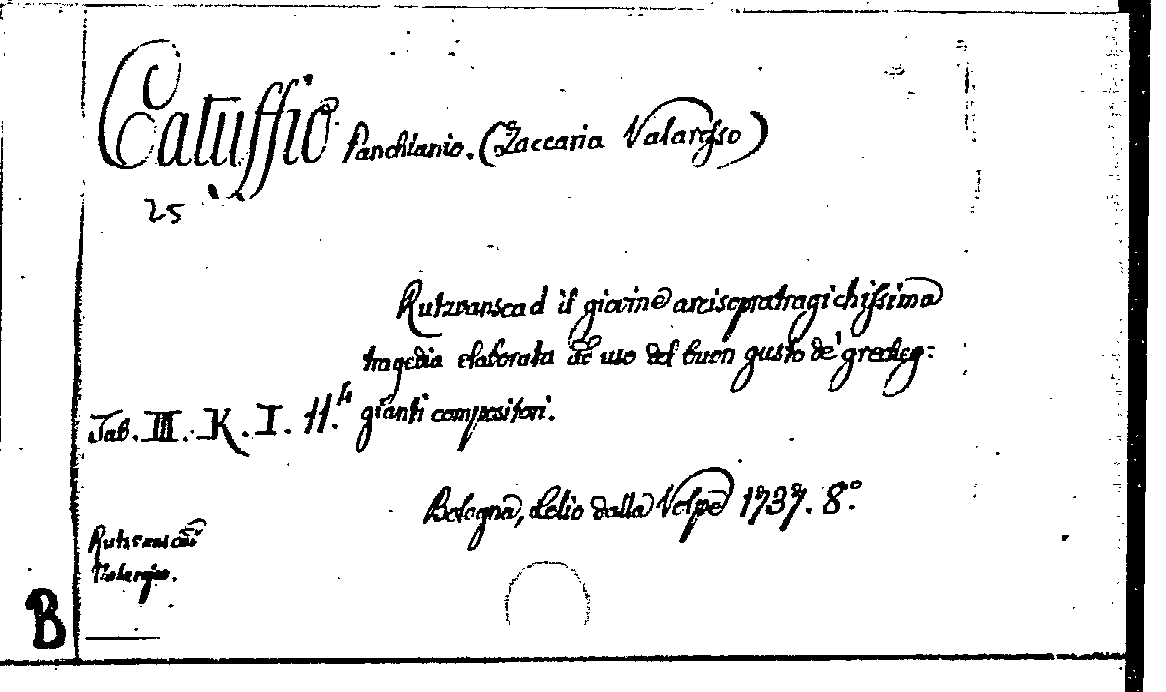 Catuffio Panchianio. (Zaccaria Valaresso)
25
Rutzvanscad il giovine arcisopratragichissima
tragedia elaborata ad uso del buon gusto de' grecheg-
gianti compositori.
Tab. III. K. I. 11.
Bologna, Lelio dalla Volpe 1737. 8.°
B